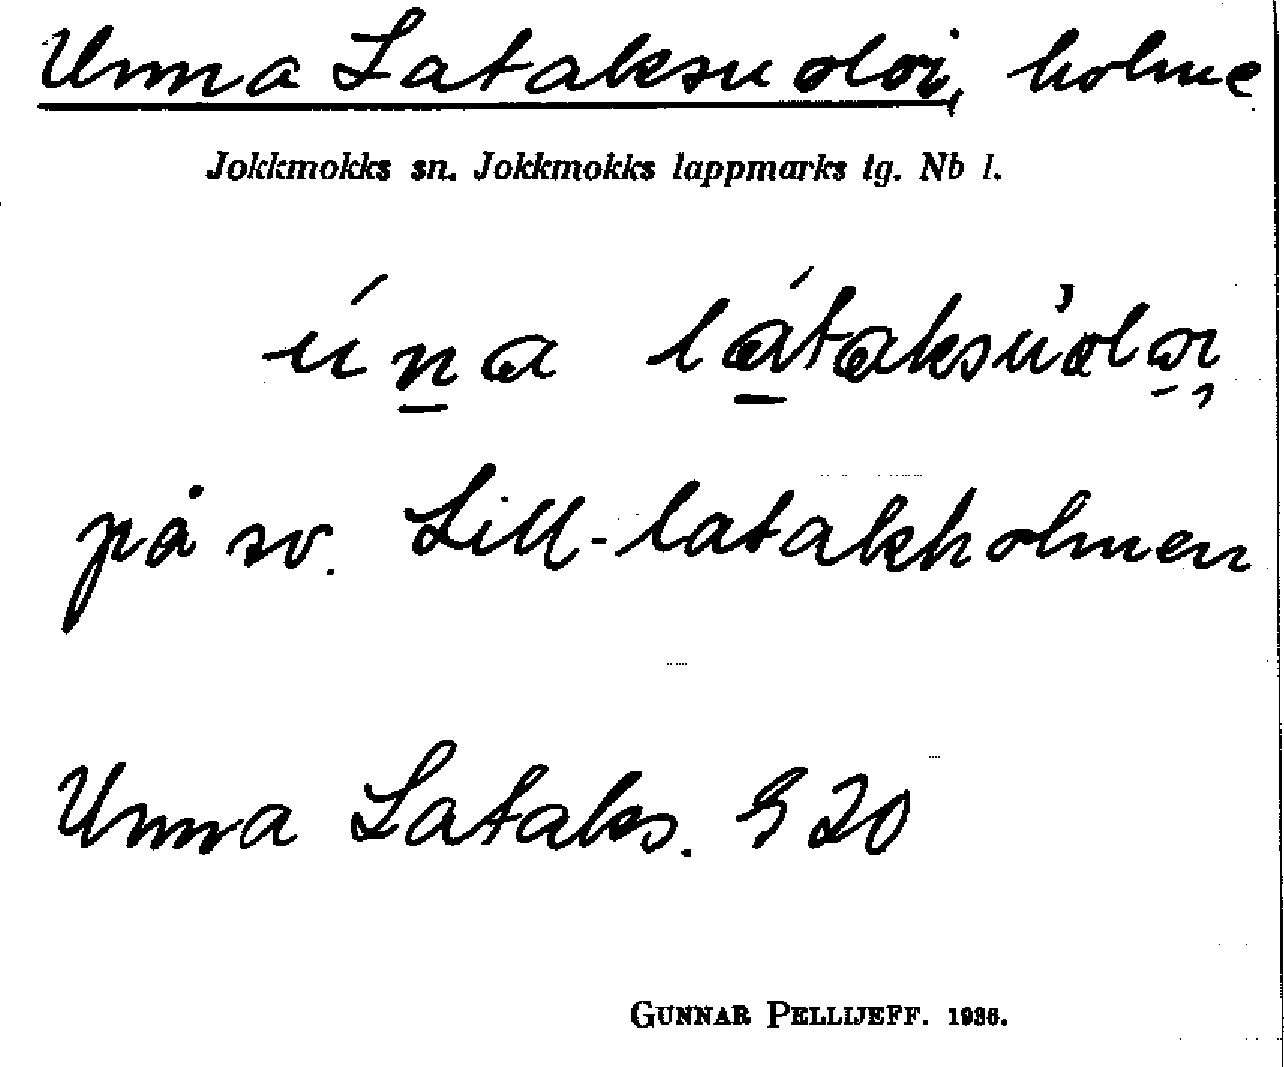 Unna Lataksuoloi, holme
Jokkmokks sn. Jokkmokks lappmarks tg. Nb l.
úna látaksúolai
på sv. Lill-latakholmen
Unna Lataks. G 20
GUNNAR PELLIJEFF. 1936.